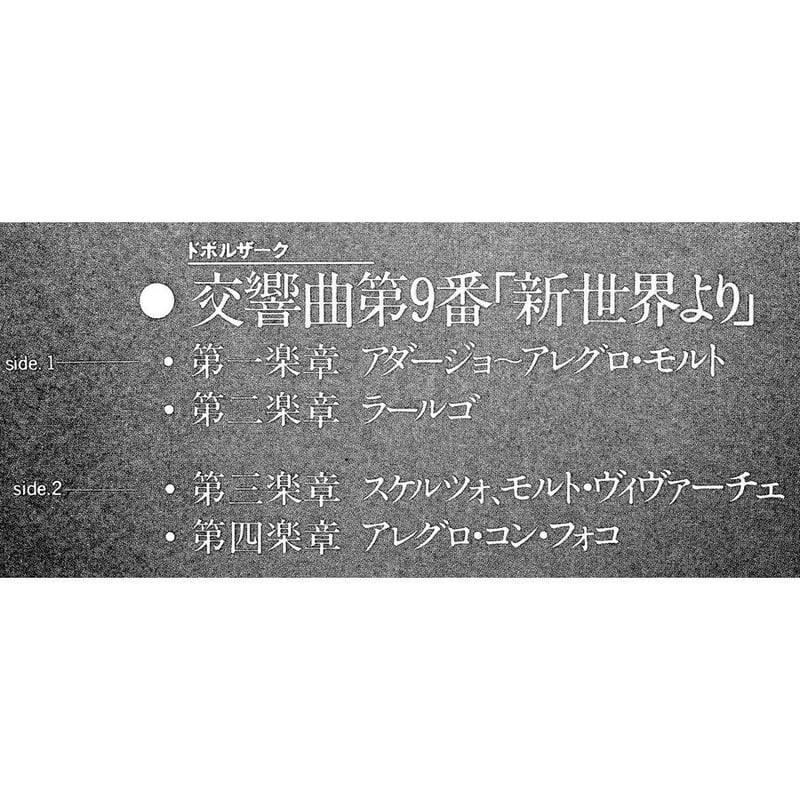 ドボルザーク
●交響曲第9番「新世界より」
side.1 ・第一楽章 アダージョ〜アレグロ・モルト
・第二楽章 ラールゴ
side.2 ・第三楽章 スケルツォ、モルト・ヴィヴァーチェ
・第四楽章 アレグロ・コン・フォコ